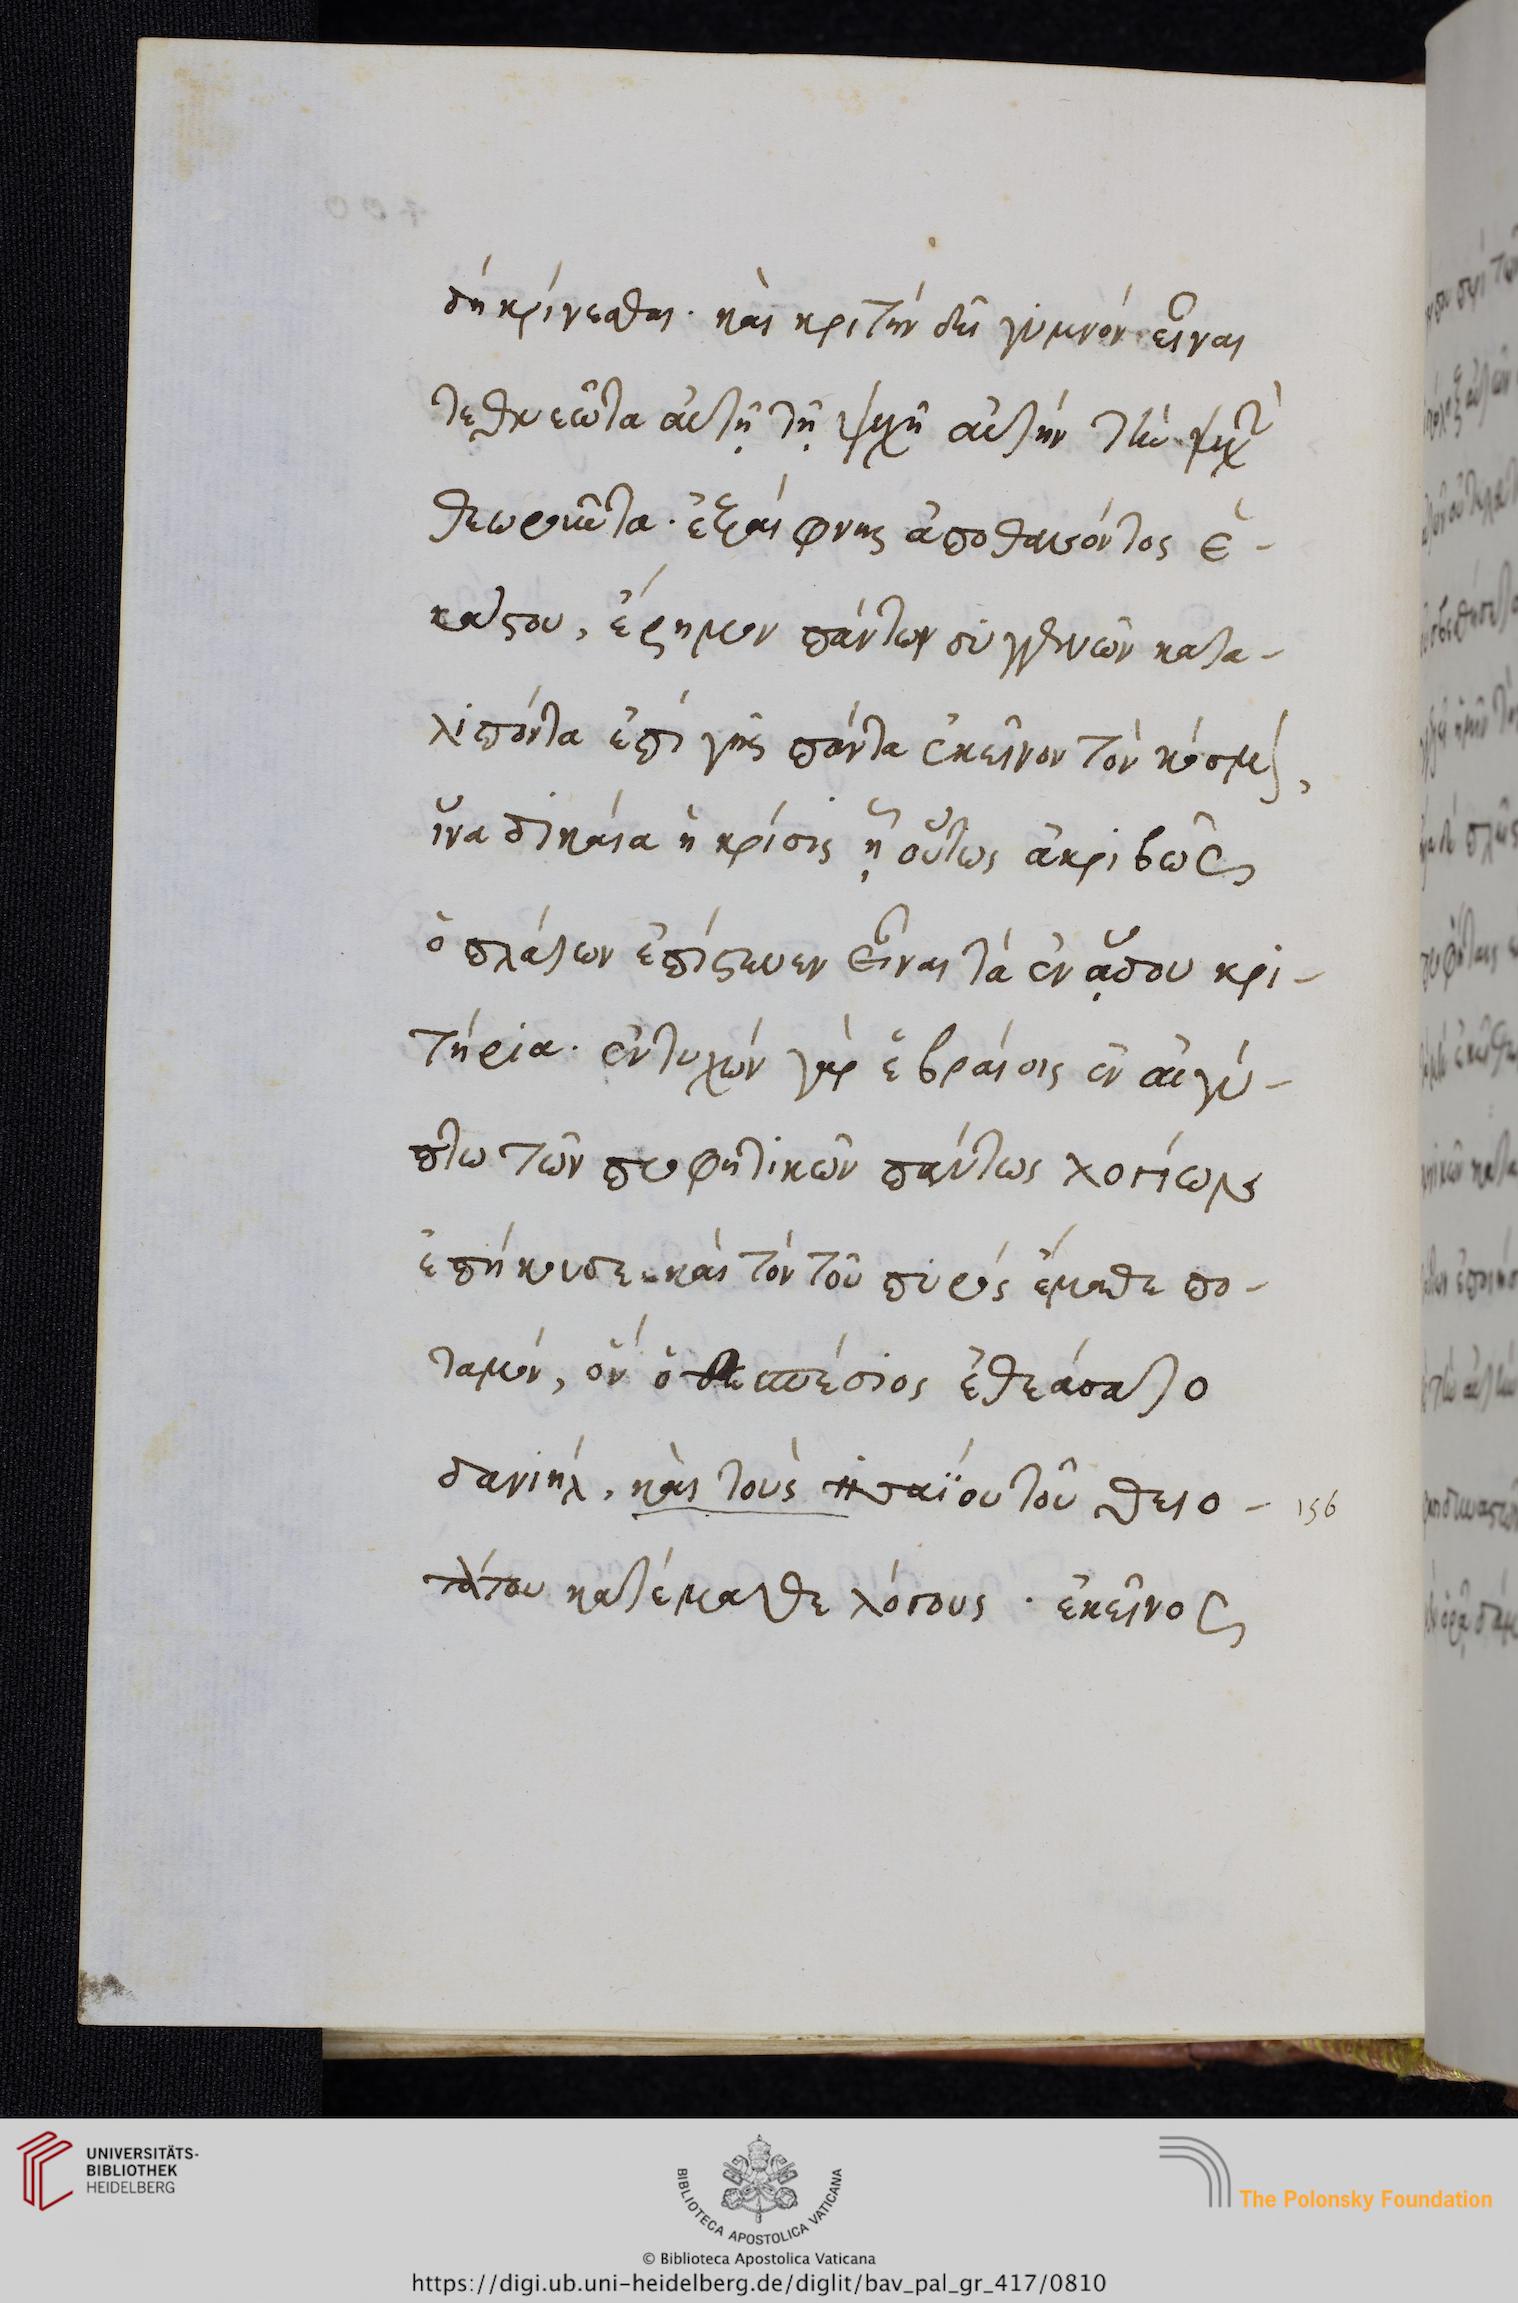 δὴ κρίνεσθαι. καὶ κριτὴν δεῖ γυμνὸν εἶναι
τεθνεῶτα αὐτῇ τῇ ψυχῇ αὐτὴν τὴν ψυχὴν
θεωροῦντα. ἐξαίφνης ἀποθανόντος ἑ-
κάστου, ἔρημον πάντων συγγενῶν κατα-
λιπόντα ἐπὶ γῆς πάντα ἐκεῖνον τὸν κόσμον,
ἵνα δικαία ἡ κρίσις ᾖ οὕτως ἀκριβῶς
ὁ πλάτων ἐπίστευεν εἶναι τὰ ἐν ᾅδου κρι-
τήρια. ἐντυχὼν γὰρ ἑβραίοις ἐν αἰγύ-
πτω τῶν προφητικῶν πάντως λογίων
ἐπήκουσε. καὶ τὸν τοῦ πυρὸς ἔμαθε πο-
ταμὸν, ὃν ὁ θεσπέσιος ἐθεάσατο
δανιὴλ, καὶ τοὺς ἡσαΐου τοῦ θειο-
τάτου κατέμαθε λόγους. ἐκεῖνος
156
UNIVERSITÄTS-
BIBLIOTHEK
HEIDELBERG
BIBLIOTECA APOSTOLICA VATICANA
The Polonsky Foundation
© Biblioteca Apostolica Vaticana
https://digi.ub.uni-heidelberg.de/diglit/bav_pal_gr_417/0810